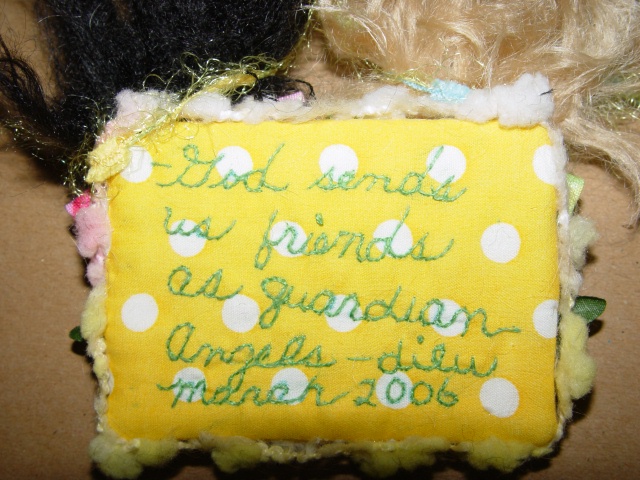 God sends
us friends
as guardian
Angels - dilu
march 2006